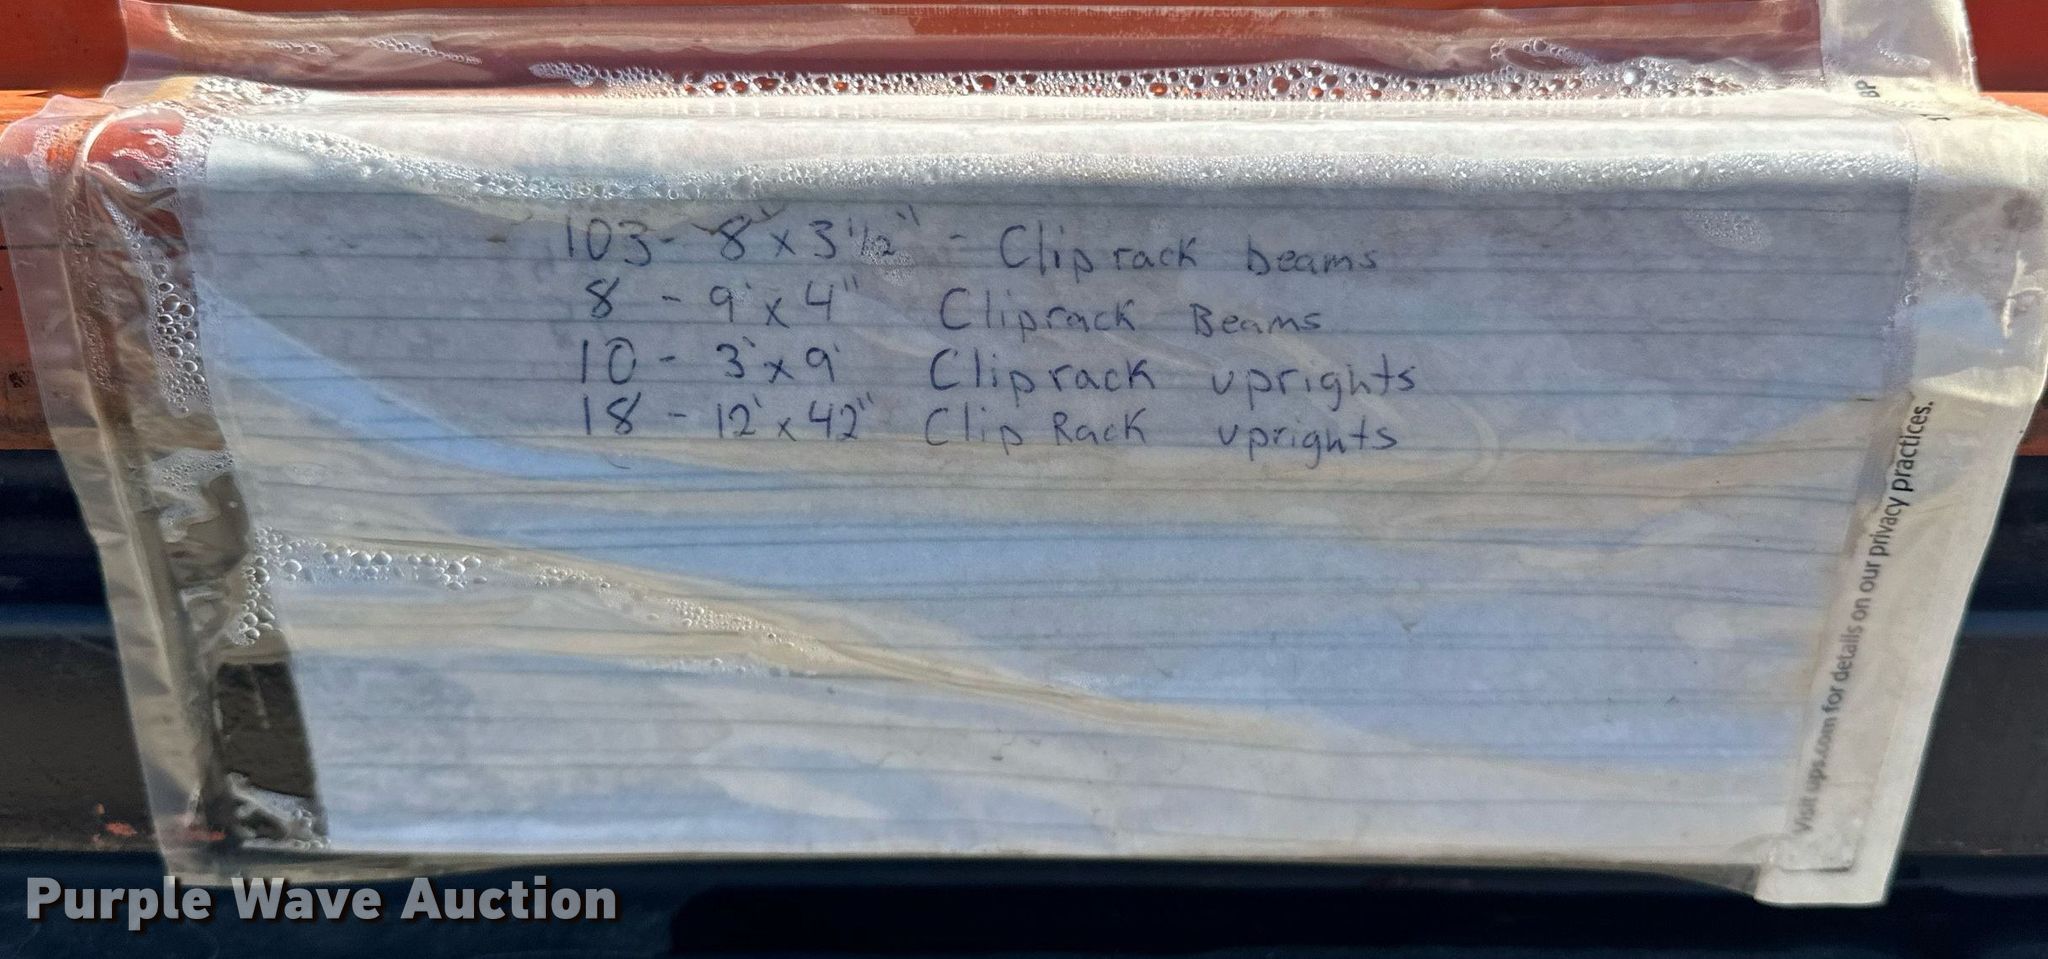 103- 8' x 3 1/2" - Cliprack beams
8 - 9' x 4" Cliprack Beams
10 - 3' x 9' Cliprack uprights
18 - 12' x 42" Clip Rack uprights
Visit ups.com for details on our privacy practices.
Purple Wave Auction